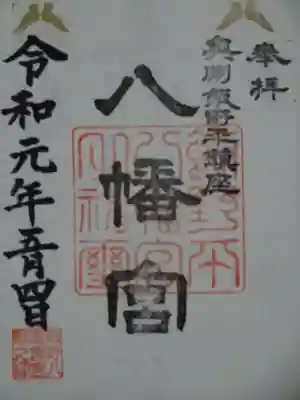 奉拝
奥州飯野平鎮座
八幡宮
令和元年五月四日